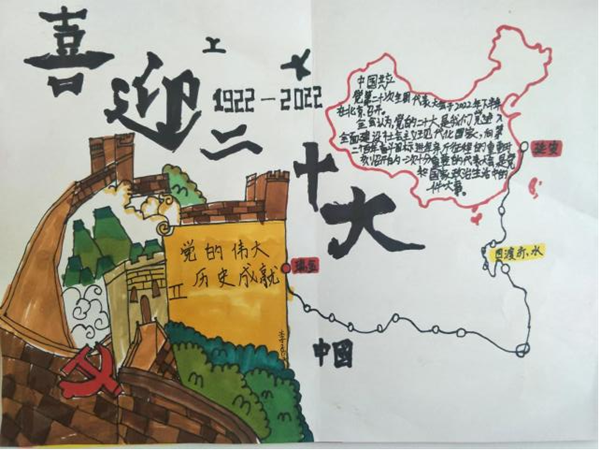 喜迎二十大
1922-2022
中国共产
党第二十次全国代表大会于2022年下半年
在北京召开。
全会认为,党的二十大是我们党进入
全面建设社会主义现代化国家、向第
二个百年奋斗目标进军新征程的重要时
刻召开的一次十分重要的代表大会,是党
和国家政治生活中的
一件大事。
延安
四渡赤水
党的伟大
历史成就
瑞金
中国